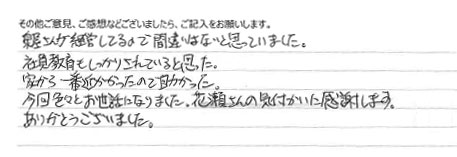 その他ご意見、ご感想などございましたら、ご記入をお願いします。
さんが経営してるので間違いはないと思っていました。
社員教育もしっかりされていると思った。
家から一番近かったので助かった。
今回色々とお世話になりました。花瀬さんの気付かいに感謝します。
ありがとうございました。